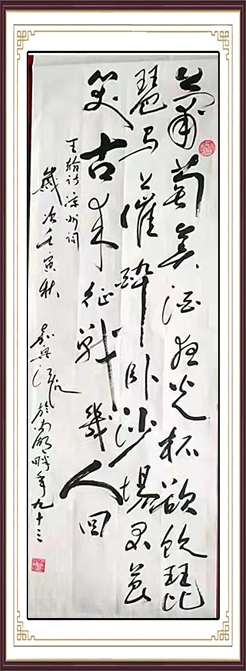 葡萄美酒夜光杯欲饮琵
琶马上催醉卧沙場君莫
笑古来征戰幾人回
王翰诗凉州词
歲次壬寅秋 於南湖畔年九十三